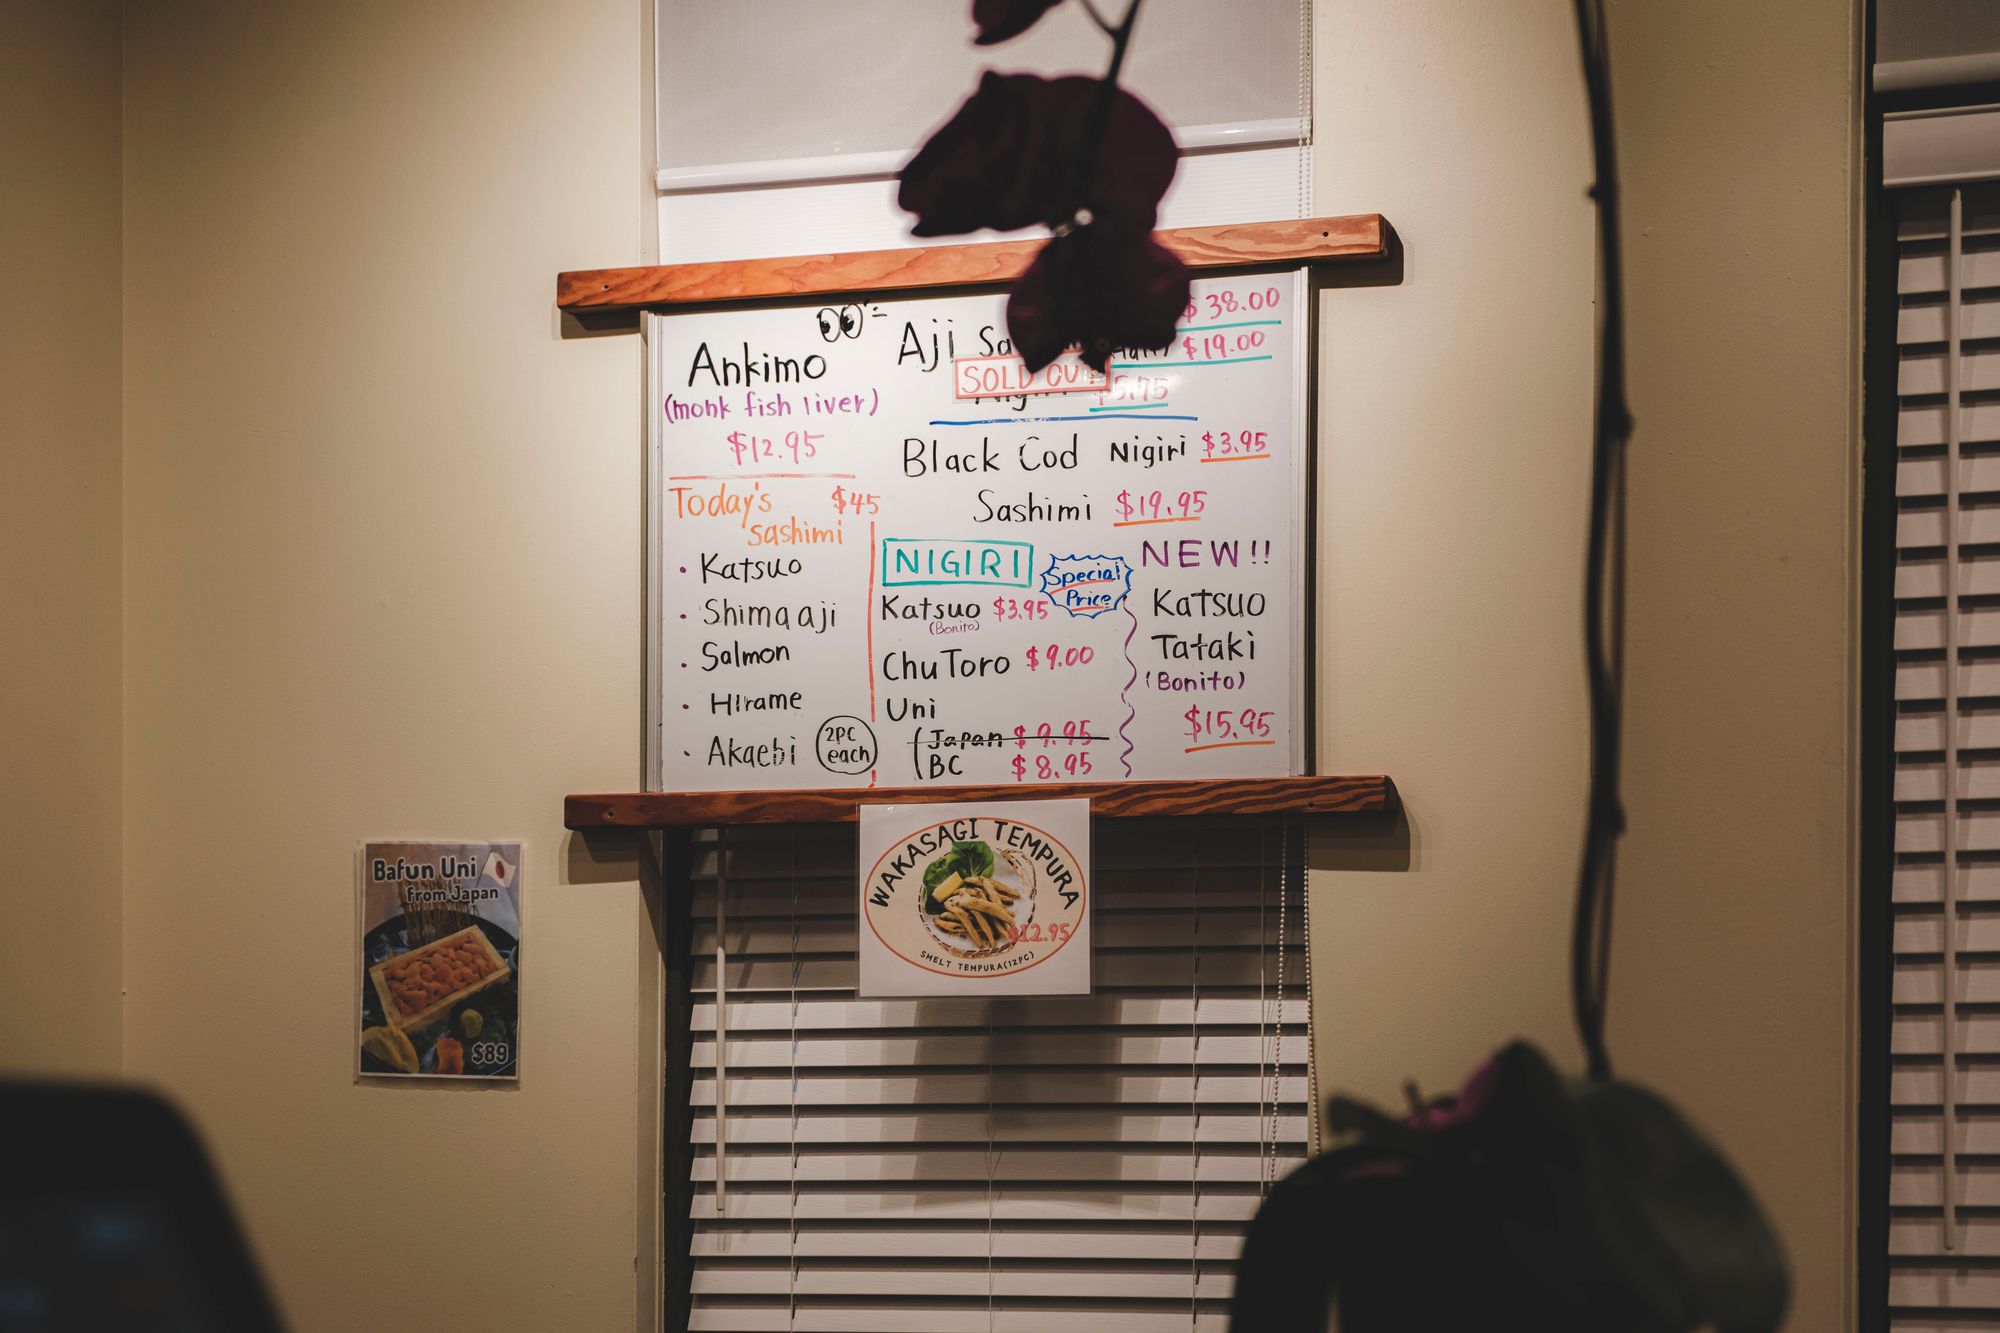 Ankimo
(monk fish liver)
$12.95
Today's $45
sashimi
• Katsuo
• Shima aji
• Salmon
• HIrame
• Akaebi
2PC
each
Aji $38.00
$19.00
SOLD OUT
Nigiri $5.75
Black Cod Nigiri $3.95
Sashimi $19.95
NIGIRI
Special
Price
Katsuo $3.95
(Bonito)
Chu Toro $9.00
Uni
Japan $9.95
BC $8.95
NEW!!
KaTsuo
Tataki
(Bonito)
$15.95
WAKASAGI TEMPURA
$12.95
SMELT TEMPURA(12PC)
Bafun Uni
from Japan
$89